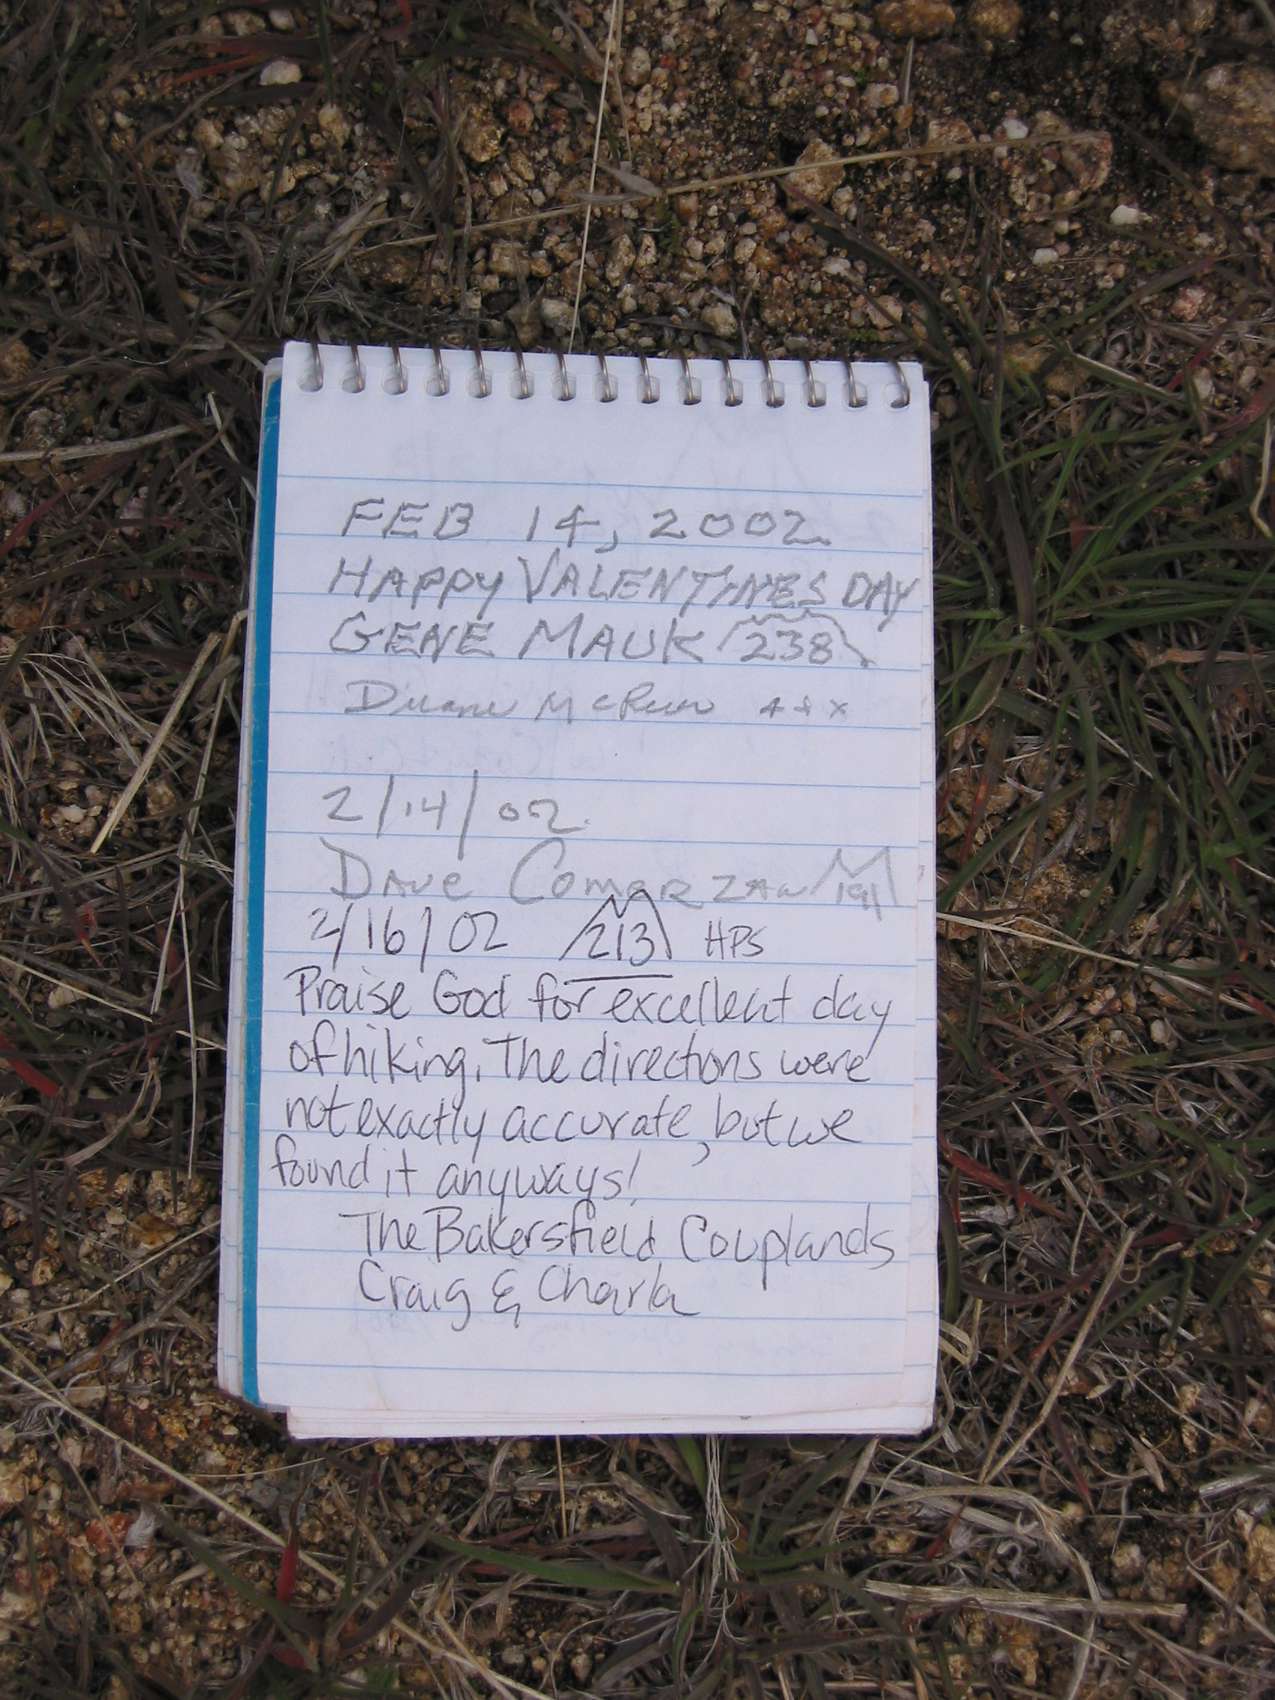 FEB 14, 2002
HAPPY VALENTINES DAY
GENE MAUK 238
Duane McRuer
2/14/02
DAVE Comerzan 191
2/16/02 213 HPS
Praise God for excellent day
of hiking. The directions were
not exactly accurate, but we
found it anyways!
The Bakersfield Couplands
Craig & Charla